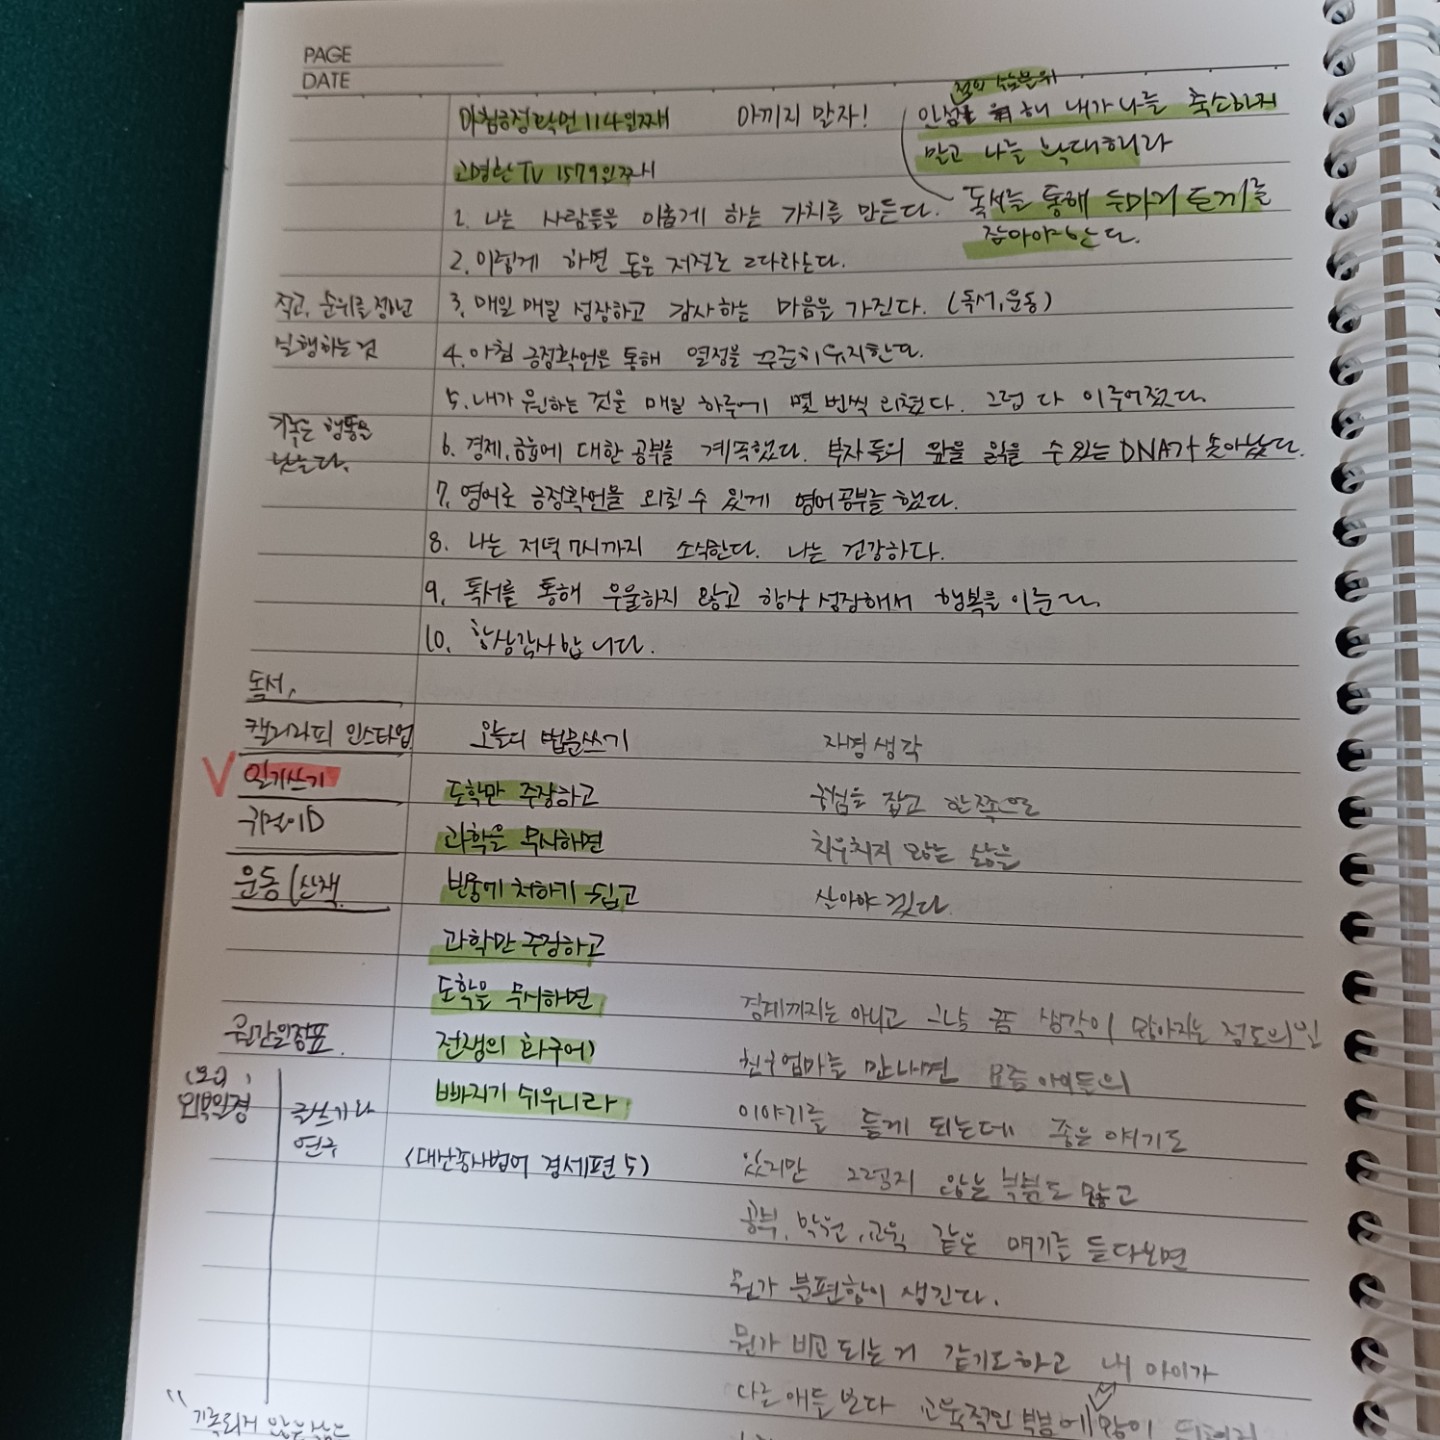 PAGE
DATE
아침긍정확언 114일째
아끼지 말자!
해 내가 나를 축소하지
말고 나를 확대해라
고명환 TV 1579일째
1. 나는 사람들을 이롭게 하는 가치를 만든다.
독서를 통해 두마리 토끼를
잡아야 한다.
2. 이렇게 하면 돈은 저절로 따라온다.
적고, 순위를 정하고
실행하는 것
3. 매일 매일 성장하고 감사하는 마음을 가진다. (독서, 운동)
4. 아침 긍정확언을 통해 열정을 꾸준히 유지한다.
5. 내가 원하는 것을 매일 하루에 몇 번씩 외쳤다. 그럼 다 이루어졌다.
기록은 행동을
낳는다.
6. 경제, 금융에 대한 공부를 계속했다. 부자들의 앞을 읽을 수 있는 DNA가 솟아났다.
7. 영어로 긍정확언을 외칠 수 있게 영어공부를 했다.
8. 나는 저녁 7시까지 소식한다. 나는 건강하다.
9. 독서를 통해 우울하지 않고 항상 성장해서 행복을 이룬다.
10. 항상 감사합니다.
독서,
캘리그라피 인스타업
일기쓰기
운동 (산책
오늘의 법문쓰기
도학만 주장하고
과학을 무시하면
빈궁에 처하기 쉽고
과학만 주장하고
도학을 무시하면
전쟁의 화구에
빠지기 쉬우니라
(대산종사법어 경세편 5)
자경생각
중심을 잡고 한쪽으로
치우치지 않는 삶을
살아야 겠다
월간일정표
외부일정
글쓰기라
연구
경계까지는 아니고 그냥 좀 생각이 많아지는 정도의 일
친구엄마를 만나면 요즘 아이들의
이야기를 듣게 되는데 좋은 얘기도
있지만 그렇지 않은 부분도 많고
공부, 학원, 교육 같은 얘기를 듣다보면
뭔가 불편함이 생긴다.
뭔가 비교 되는 거 같기도 하고 내 아이가
다른 애들 보다 교육적인 부분에 많이
"기록되지 않은 삶은